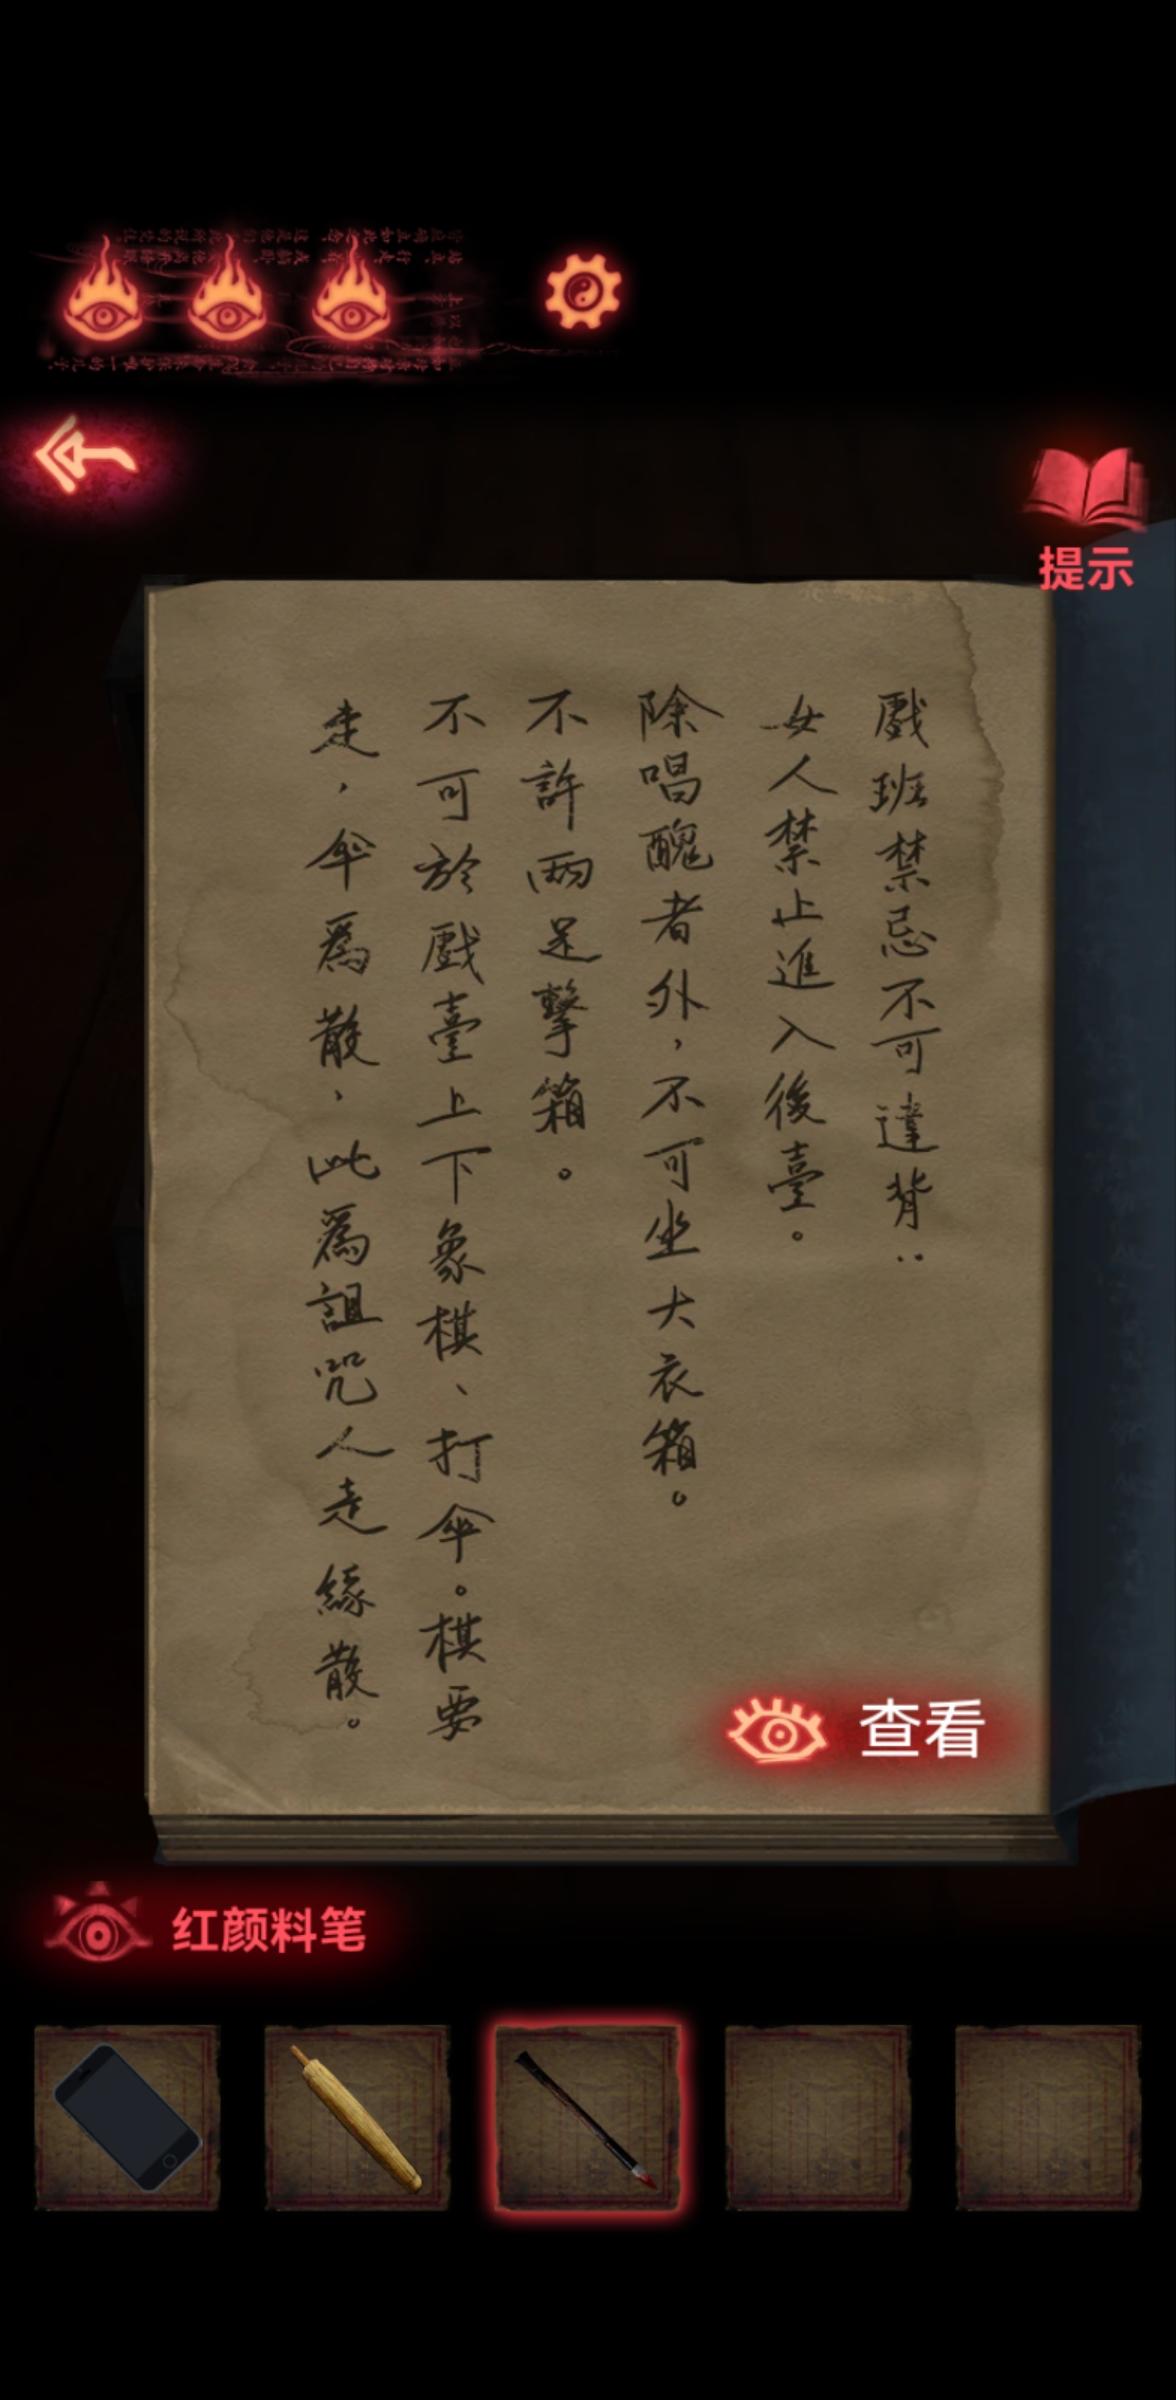 提示
戲班禁忌不可違背：
女人禁止進入後臺。
除唱醜者外，不可坐大衣箱。
不許兩足擊箱。
不可於戲臺上下象棋、打傘。棋要
走，傘爲散，此爲詛咒人走緣散。
查看
红颜料笔